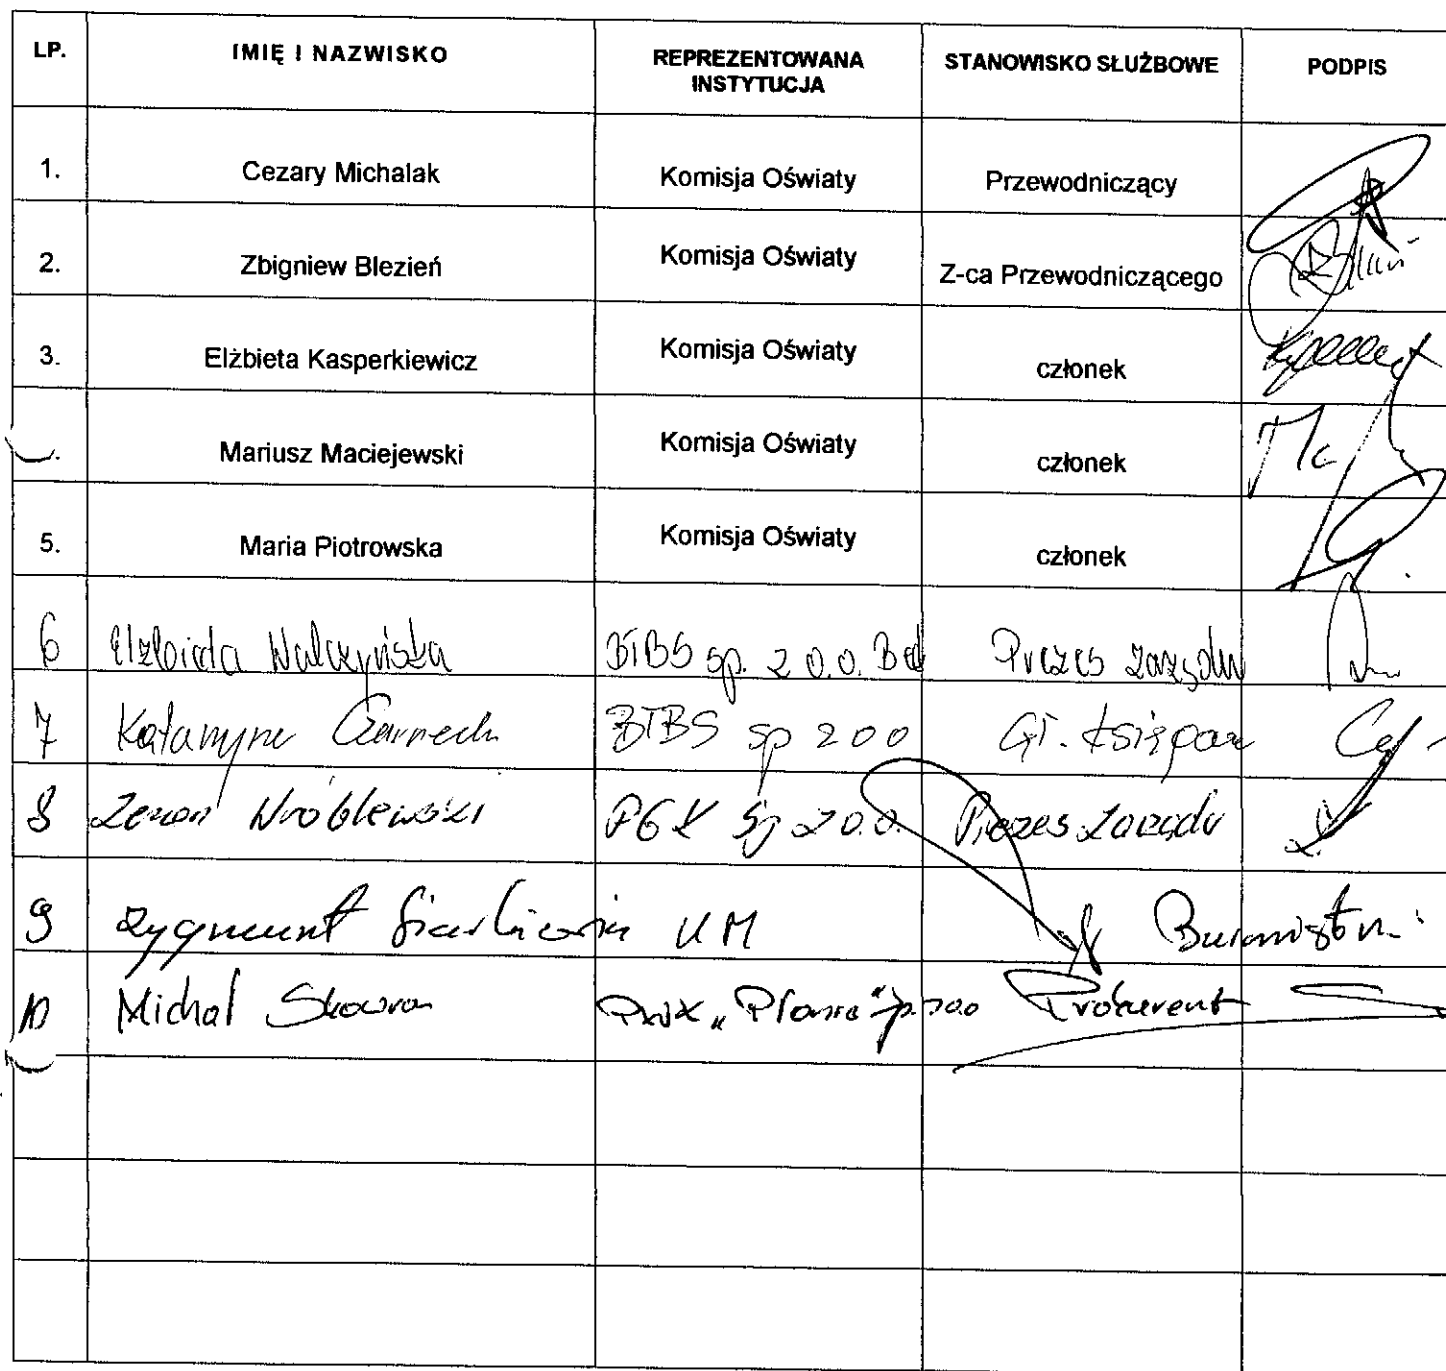 LP. IMIĘ I NAZWISKO REPREZENTOWANA INSTYTUCJA STANOWISKO SŁUŻBOWE PODPIS
1. Cezary Michalak Komisja Oświaty Przewodniczący
2. Zbigniew Blezień Komisja Oświaty Z-ca Przewodniczącego
3. Elżbieta Kasperkiewicz Komisja Oświaty członek
Mariusz Maciejewski Komisja Oświaty członek
5. Maria Piotrowska Komisja Oświaty członek
6 Elżbieta Walczyńska BTBS sp. z o.o. Prezes zarządu
7 Katarzyna BTBS sp z o o Gł. księgow
8 Zenon Wróblewski PGK Sp z o.o. Prezes Zarządu
9 Zygmunt UM Burmistrz
10 Michał Skowron PWiK „ " Prokurent